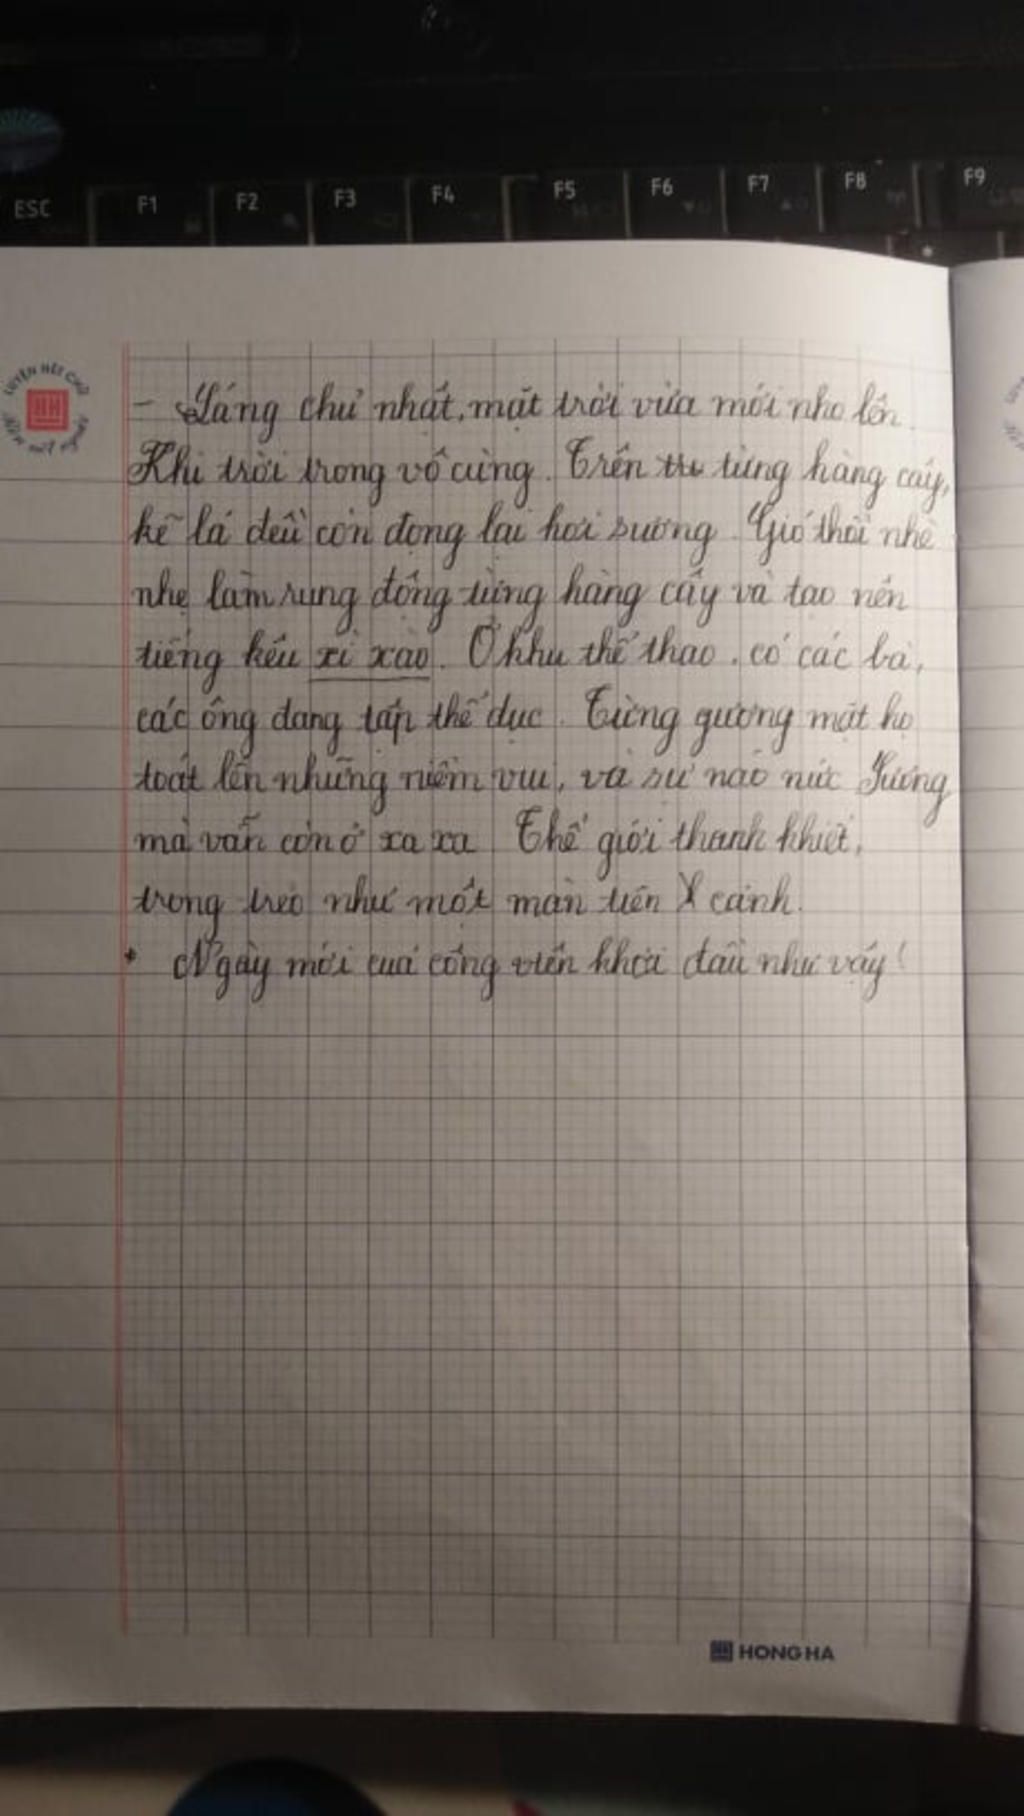 ESC F1 F2 F3 F4 F5 F6 F7 F8 F9
LUYỆN NÉT CHỮ
RÈN NẾT NGƯỜI
- Sáng chủ nhật, mặt trời vừa mới nhô lên.
Khi trời trong vô cùng. Trên từng hàng cây,
kẽ lá đều còn đọng lại hơi sương. Gió thổi nhè
nhẹ làm rung động từng hàng cây và tạo nên
tiếng kêu xì xào. Ở khu thể thao, có các bà,
các ông đang tập thể dục. Từng gương mặt họ
toát lên những niềm vui, và sự náo nức. Sương
mà vẫn còn ở xa xa. Thế giới thanh khiết,
trong trẻo như một màn tiên cảnh.
* Ngày mới của công viên khởi đầu như vậy!
HONG HA